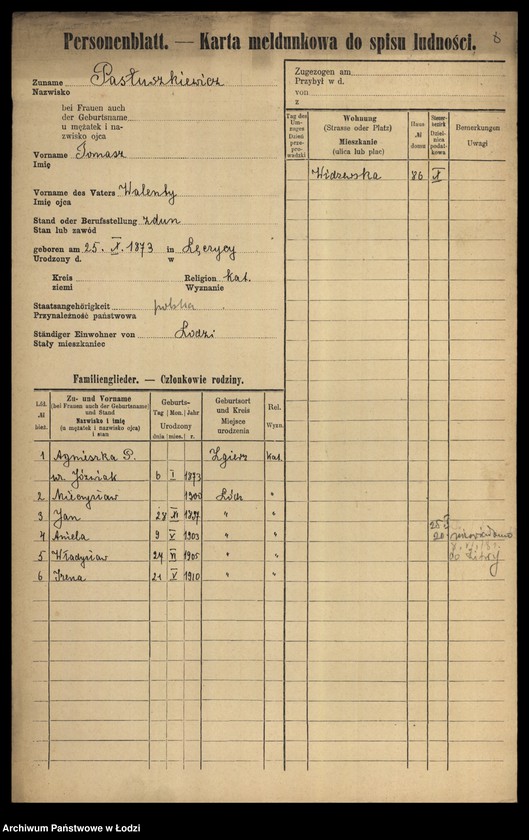 Personenblatt. — Karta meldunkowa do spisu ludności.
8
Zuname Pastuszkiewicz
Nazwisko
bei Frauen auch
der Geburtsname
u mężatek i na-
zwisko ojca
Vorname Tomasz
Imię
Vorname des Vaters Walenty
Imię ojca
Stand oder Berufsstellung zdun
Stan lub zawód
geboren am 25. X. 1873 in Łęczycy
Urodzony d. w
Kreis Religion kat.
ziemi Wyznanie
Staatsangehörigkeit polska
Przynależność państwowa
Ständiger Einwohner von Łodzi
Stały mieszkaniec
Zugezogen am
Przybył w d.
von
z
Tag des Umzuges Dzień przeprowadzki
Wohnung (Strasse oder Platz) Mieszkanie (ulica lub plac)
Haus № domu
Steuerbezirk Dzielnica podatkowa
Bemerkungen Uwagi
Widzewska 86 X
Familienglieder. — Członkowie rodziny.
Lfd. № bież.
Zu- und Vorname
(bei Frauen auch der Geburtsname)
und Stand
Nazwisko i imię
(u mężatek i nazwisko ojca)
i stan
Geburts-
Tag Mon. Jahr
Urodzony
dnia mies. r.
Geburtsort
und Kreis
Miejsce
urodzenia
Rel.
Wyzn.
1 Agnieszka P. Zgierz kat.
ur. Jóźwiak 6 I 1873
2 Mieczysław 1900 Łódź "
3 Jan 28 XI 1897 " "
4 Aniela 9 V 1903 " "
5 Władysław 24 VI 1905 " "
6 Irena 21 V 1910 " "
Archiwum Państwowe w Łodzi